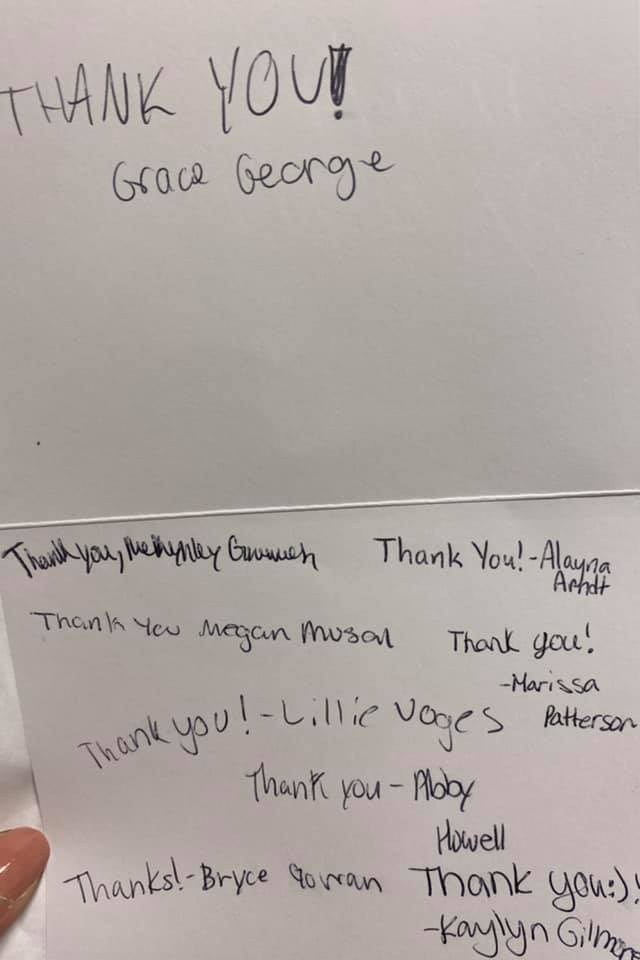 THANK YOU!
Grace George
Thank you, McKynley
Thank You! - Alayna
Arndt
Thank You Megan
Thank you!
-Marissa
Patterson
Thank you! - Lillie Voges
Thank you - Abby
Howell
Thanks! - Bryce
Thank you :)!
-Kaylyn Gilmore